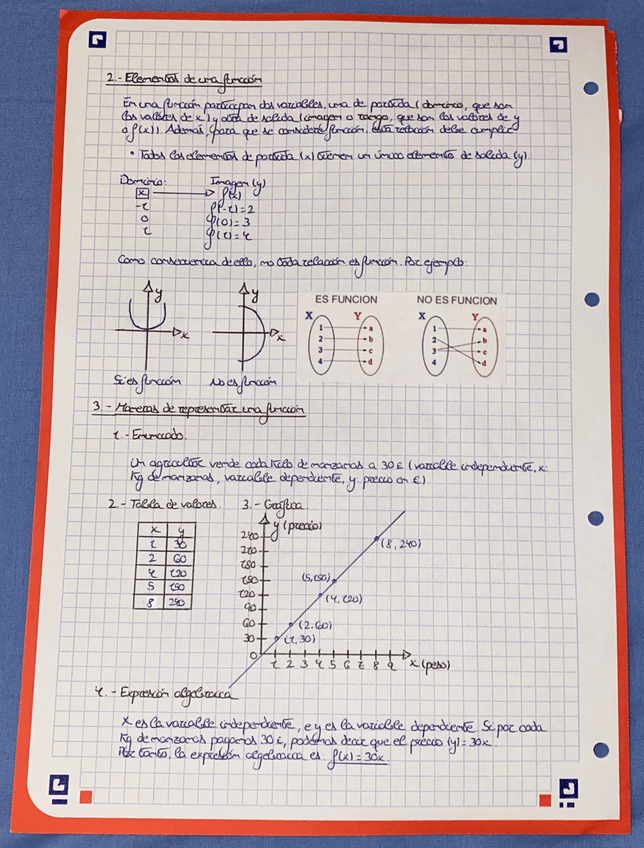 2.- Elementos de una función
En una función participan dos variables, una de partida (dominio, que son
los valores de x) y otra de salida (imagen o rango, que son los valores de y
o f(x)). Además, para que se considere función, esta relación debe cumplir:
• Todos los elementos de partida (x) tienen un único elemento de salida (y).
Dominio: Imagen (y)
x f(x)
-1 f(-1)=2
0 f(0)=3
1 f(1)=4
Como consecuencia de ello, no toda relación es función. Por ejemplo:
y x
Si es función
y x
No es función
ES FUNCION
X Y
1 a
2 b
3 c
4 d
NO ES FUNCION
X Y
1 a
2 b
3 c
4 d
3.- Maneras de representar una función
1.- Enunciado.
Un agricultor vende cada kilo de manzanas a 30 € (variable independiente, x:
Kg de manzanas, variable dependiente, y: precio en €).
2.- Tabla de valores.
x y
1 30
2 60
4 120
5 150
8 240
3.- Gráfica
y (precio)
240
210
180
150
120
90
60
30
0
1 2 3 4 5 6 7 8 9 x (peso)
(8, 240)
(5,150)
(4, 120)
(2,60)
(1,30)
4.- Expresión algebraica
x es la variable independiente, e y es la variable dependiente. Si por cada
Kg de manzanas pagamos 30 €, podemos decir que el precio (y) = 30x.
Por tanto, la expresión algebraica es: f(x)=30x